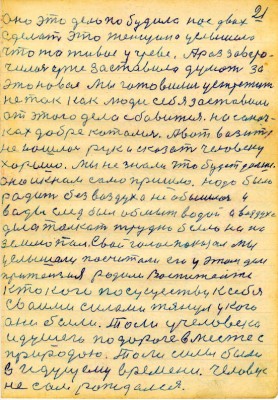 21
оно это дело побудило нас двох
сделать это женщина услышала
что то живое у чреве. А раз завере
заставила думать за
это новая мы готовились устретить
не так как люди себя заставили
от этого дела сбавится. на саноч-
ках добре катался. А вот везти
не пошла рука сказать человеку
хорошо. Мы не знали что будет
само пришло. надо было
родит без воздуха не обошлося у
воды след был обмыт водой а воздухе
дела толкат трудно было но на
землю Свой голос мы
услышали посчитали его у этом деле
родили воспитайте
кто кого по существу к себе
своими силами тянул у кого
они были. То ли у человека
идущего по дороге вместе с
природою. То ли силы были
в идущему времени. Человек
не сам рождался.